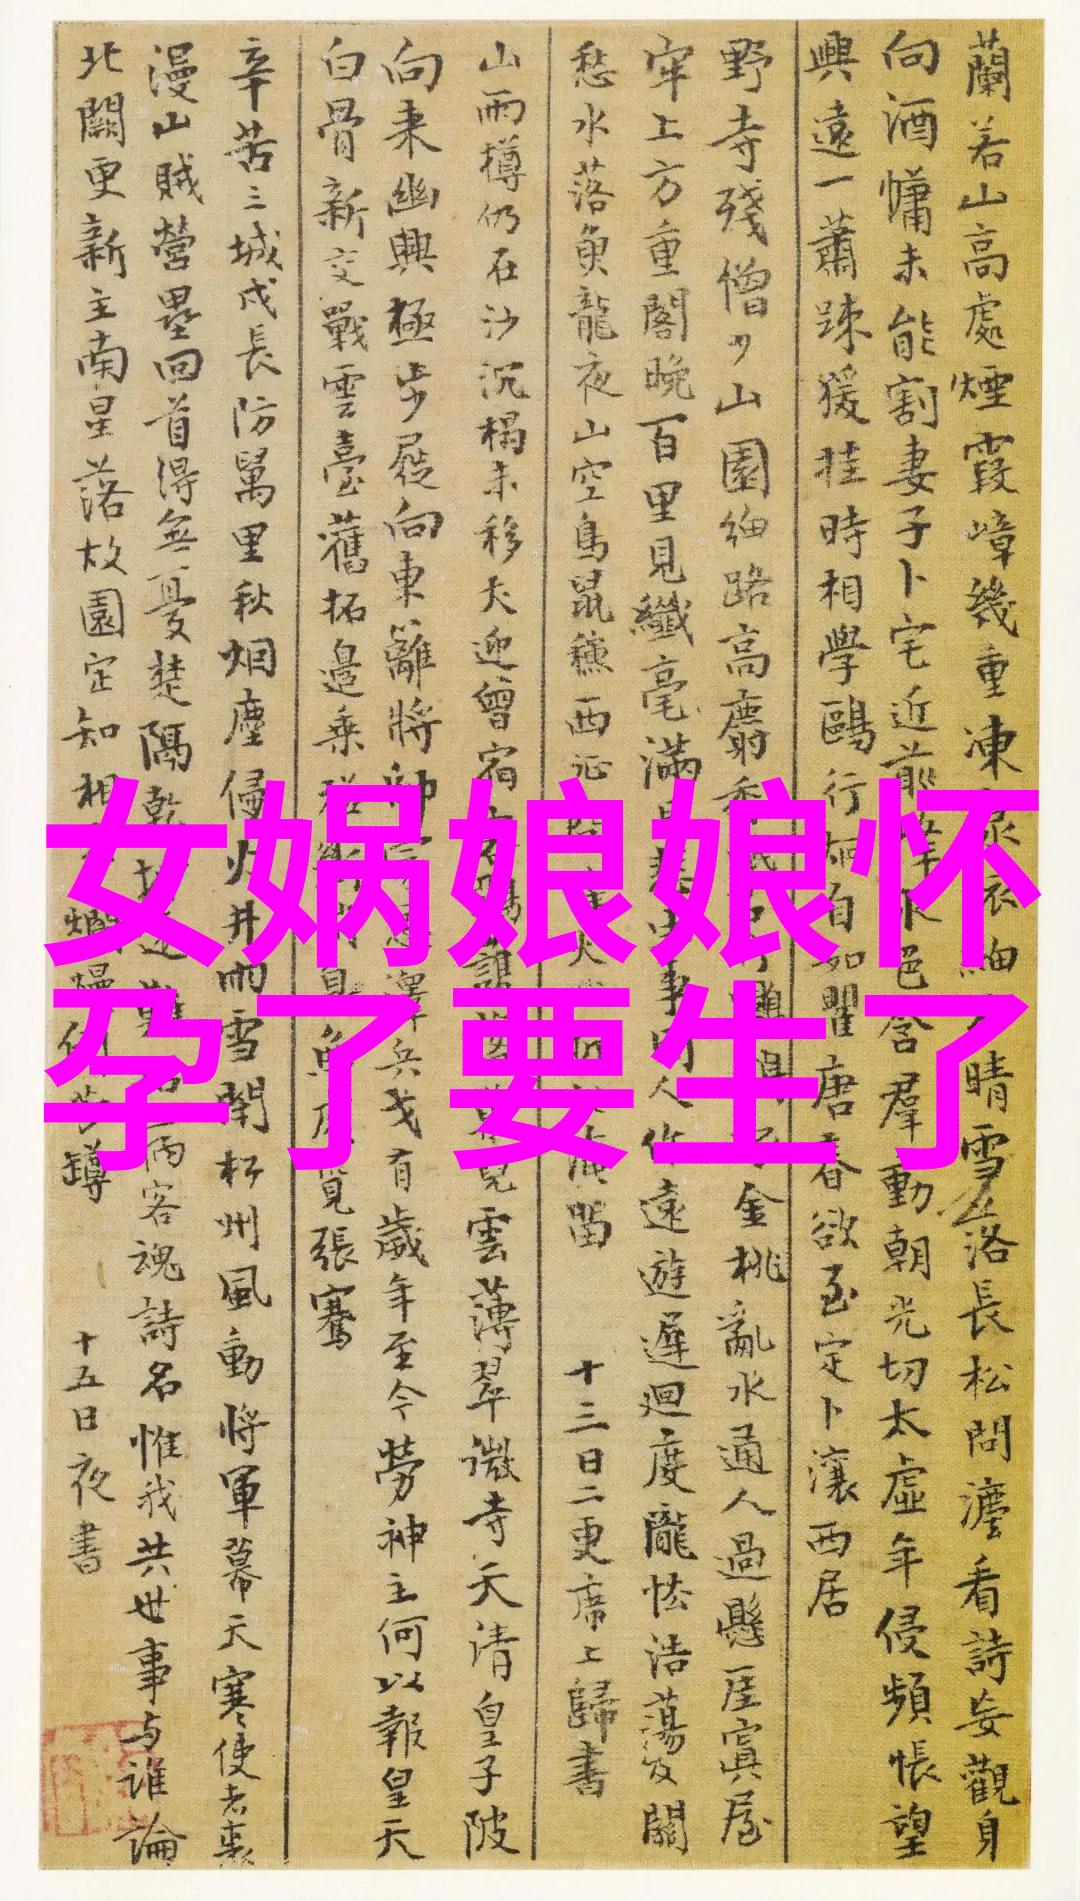 蘭若山高處煙霞嶂幾重凍泉依細晴雪落長松問灋看詩妄觀身
向酒慵未能割妻子卜宅近前峯水色含羣動朝光切太虛年侵頻悵望
興遠一蕭踈猨挂時相學鷗行炯自如瞿唐春欲至定卜瀼西居
野寺殘僧少山園細路高麝香金桃亂水通人過懸崖寘屋
牢上方重閣晚百里見纖毫滿目悲生事因人作遠遊遲迴度隴怯浩蕩及關
愁水落魚龍夜山空鳥鼠穐西征問烽火心折此淹留 十三日二更席上歸書
山雨樽仍在沙沉榻未移犬迎曾宿客雲薄翠微寺天清皇子陂
向來幽興極步屧向東籬將帥兵戈有歲年至今勞神主何以報皇天
白骨新交戰雲臺舊拓邊乘張騫
辛苦三城戍長防萬里秋烟塵侵火井雨雪閉松州風動將軍幕天寒使者裘
漫山賊營壘回首得無憂楚隔乾病客魂詩名惟我共世事与誰論
北闕更新主南星落故園定知相樽 十五日夜書
女娲娘娘怀
孕了要生了